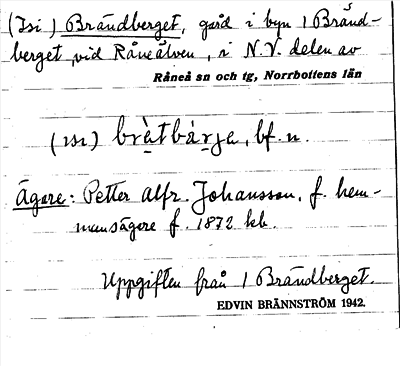 (Isi) Brändberget, gård i byn 1 Bränd-
berget, vid Råneälven, i N.V. delen av
Råneå sn och tg, Norrbottens län
(ısı) brȧ̀tbärjən, bf. n.
Ägare: Petter Alfr. Johansson, f. hem-
mansägare f. 1872 kb.
Uppgiften från 1 Brändberget.
EDVIN BRÄNNSTRÖM 1942.